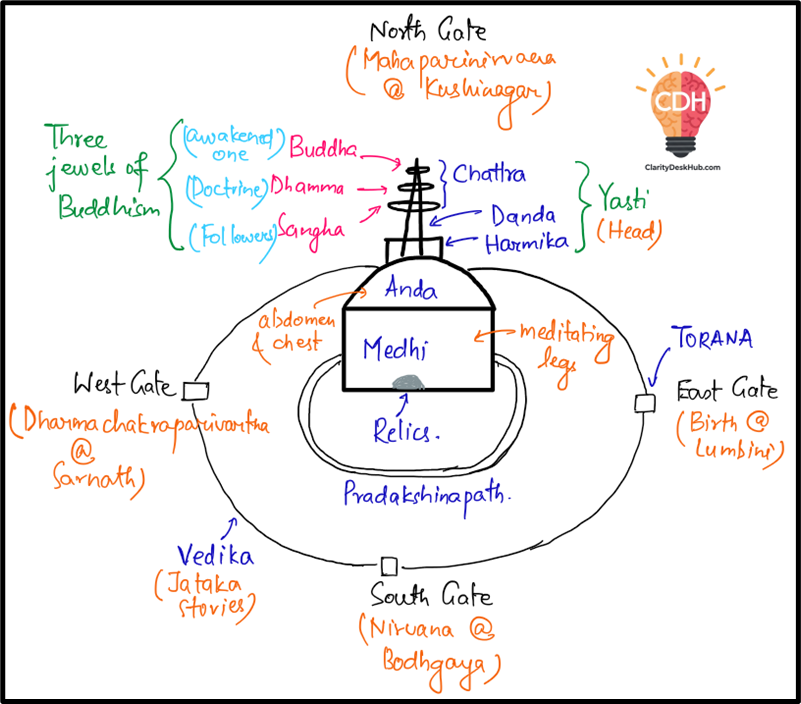 North Gate
(Mahaparinirvana
@ Kushinagar)
CDH
ClarityDeskHub.com
Three
jewels of
Buddhism
(awakened
one)
Buddha
(Doctrine) Dhamma
(Followers) Sangha
Chattra
Danda
Harmika
Yasti
(Head)
Anda
abdomen
& chest
Medhi
meditating
legs
Relics.
Pradakshinapath.
TORANA
West Gate
(Dharmachakraparivartna
@
Sarnath)
East Gate
(Birth @
Lumbini)
Vedika
(Jataka
stories)
South Gate
(Nirvana @
Bodhgaya)